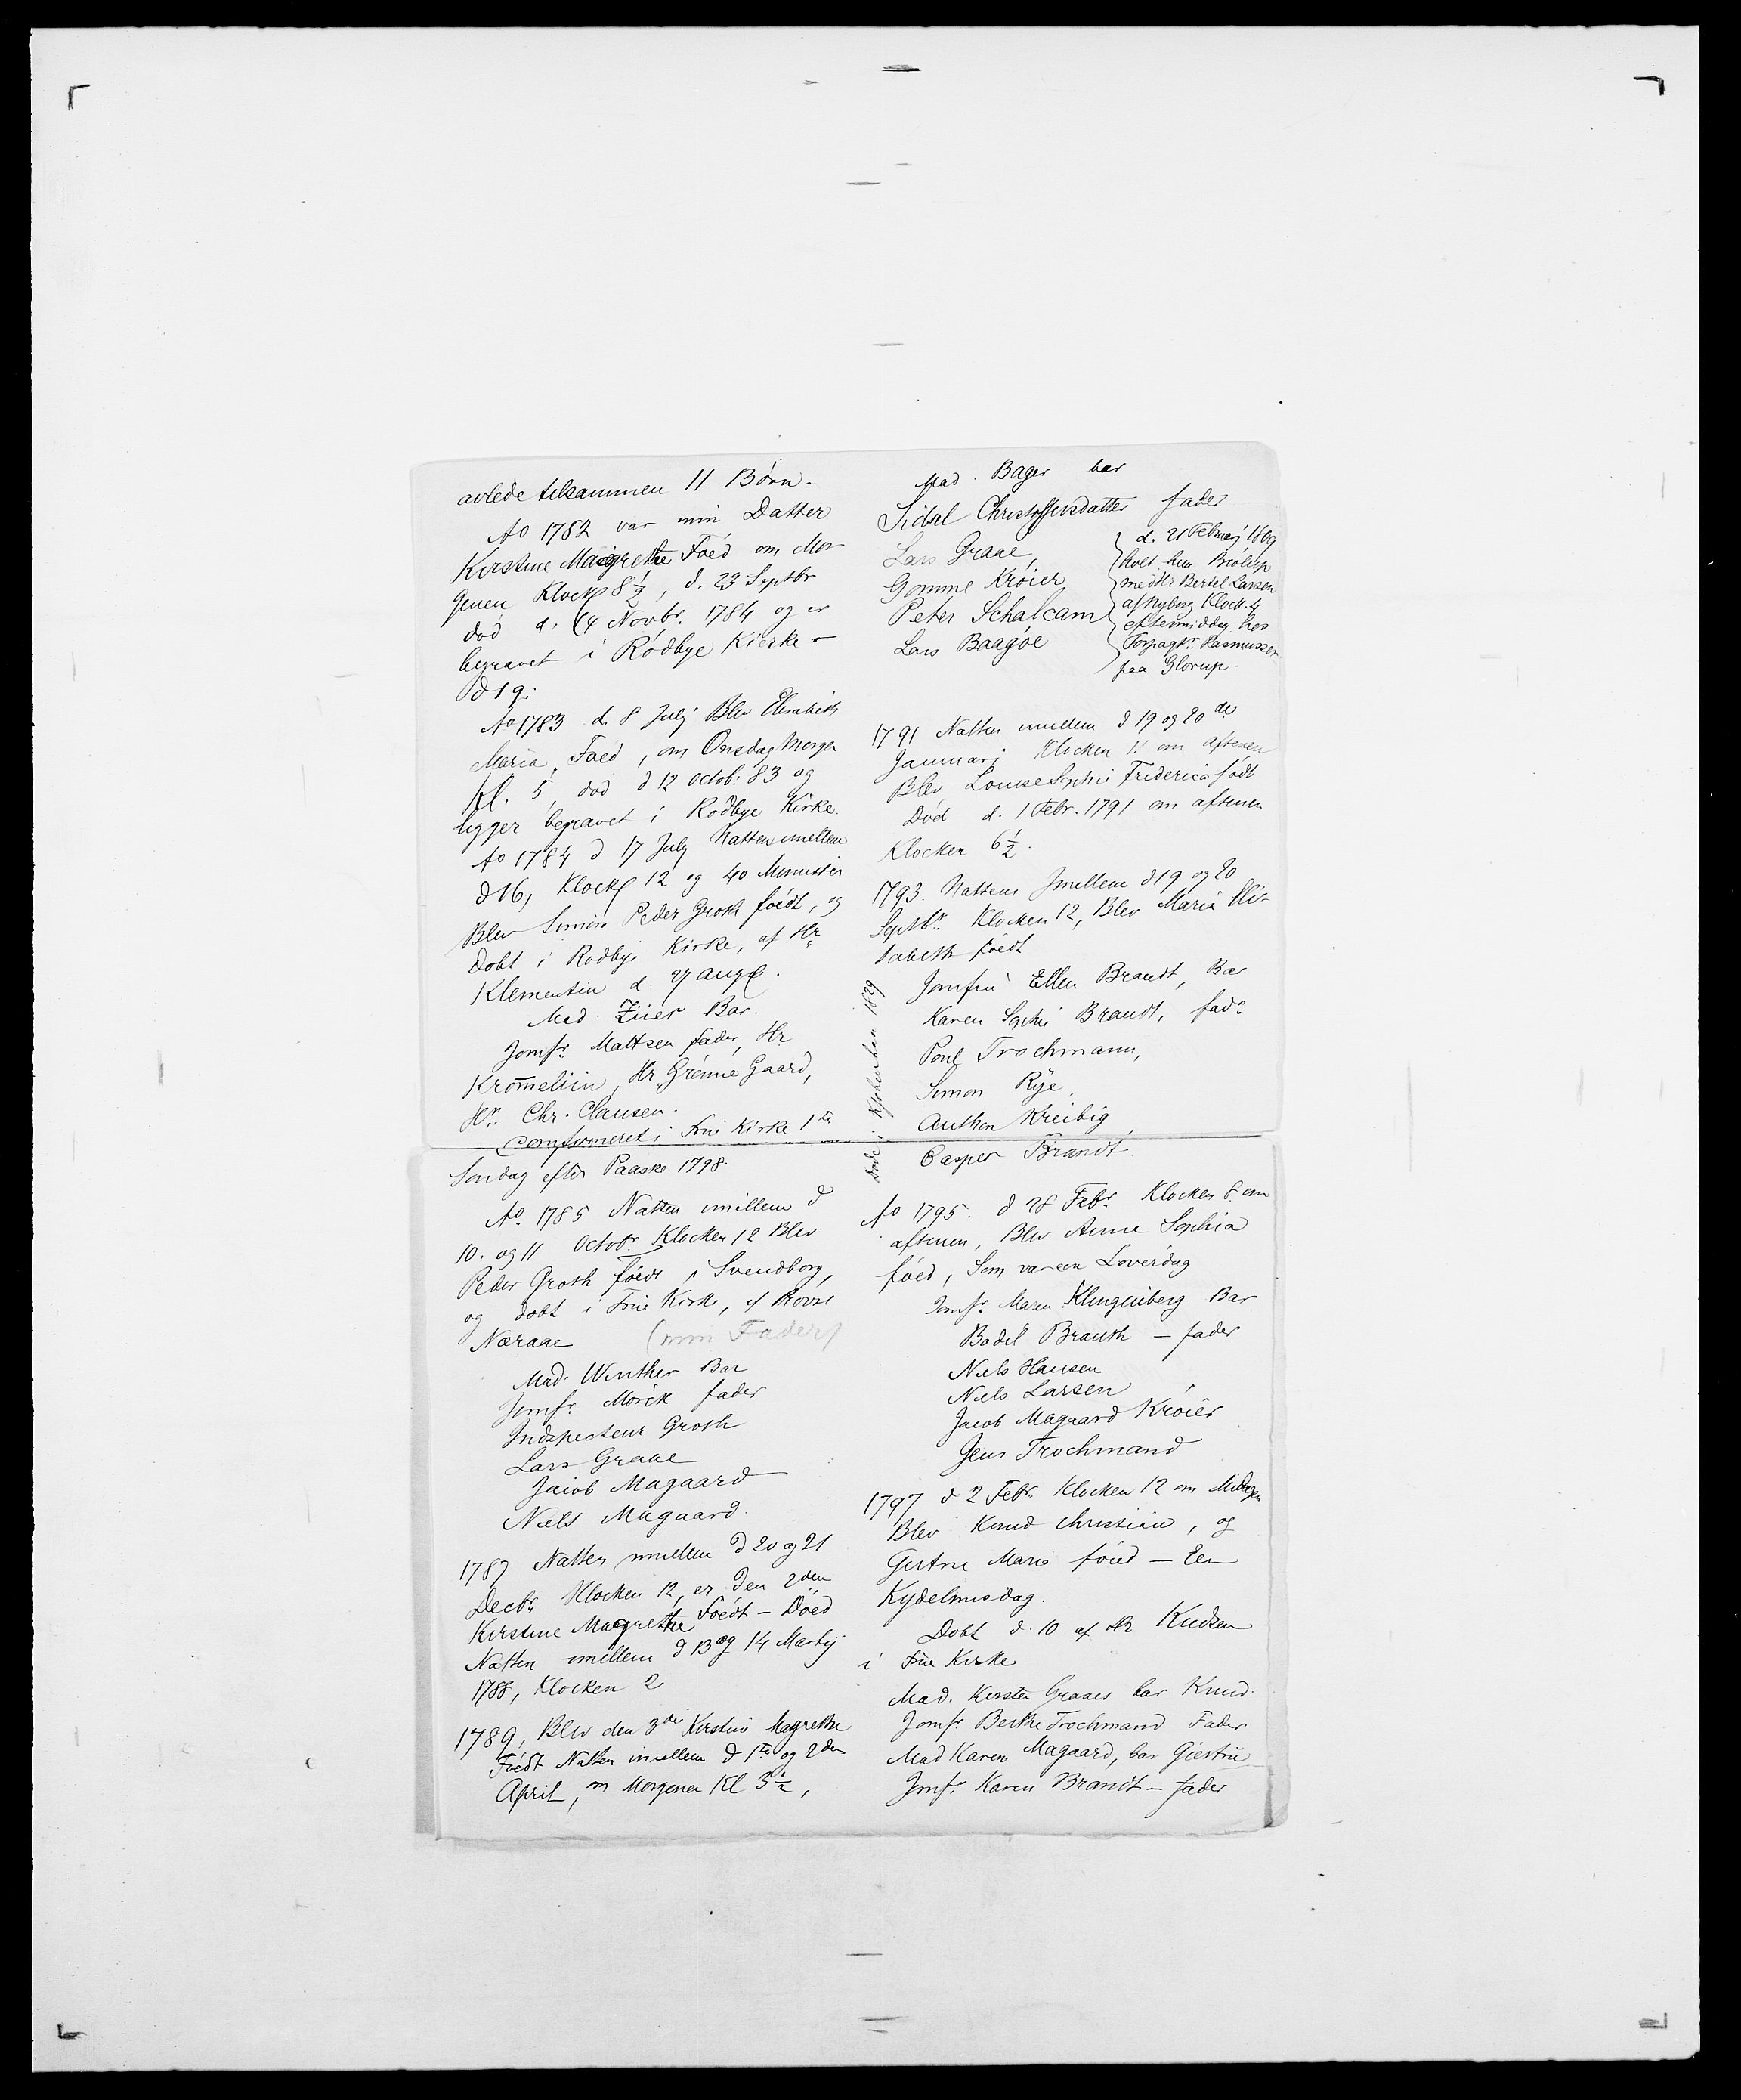 avlede tilsammen 11 Börn.
Ao 1782 var min Datter
Kirstine Magrethe Föed om Mor-
genen Klock 8½, d. 23 Septbr
död d. 14 Novbr. 1784 og er
begravet i Rödbye Kierke -
d 19:
Ao 1783 d. 8 Julj Blev Elisabeth
Maria, Föed, om Onsdag Morgen
Kl. 5, död d 12 Octob: 83 og
ligger begravet i Rödbye Kirke.
Ao 1784 d 17 July Natten imellem
d 16, Klock 12 og 40 Minutter
Blev Simon Peder Groth föedt, og
Döbt i Rödbye Kirke, af Hr
Klementin d. 27 aug.
Mad. Züer Bar.
Jomfr. Maltsen fader, Hr
Krom̄eliin, Hr Grönne Gaard,
Hr. Chr. Clausen.
Comfirmeret i Frue Kirke 1te
Söndag efter Paaske 1798.
Ao. 1785 Natten imillem d
10. og 11 Octobr. Klocken 12 Blev
Peder Groth föedt i Svendborg,
og döbt i Frue Kirke, af Provst
Næraae (min Fader)
Mad. Winther Bar
Jomfr. Mörck fader
Indspecteur Groth
Lars Graae
Jacob Magaard
Niels Magaard.
1787 Natten imellem d 20 og 21
Decbr. Klocken 12, er den 2den
Kirstine Magrethe Föedt - Döed
Natten imellem d 13 og 14 Martij
1788, Klocken 2
1789, Blev den 3die Kirstine Magrethe
Födt Natten imellem d 1te og 2den
April, om Morgenen Kl 3½,
Mad. Bager bar
Sidsel Christoffersdatter fader
Lars Graae,
Gomme Kröier
Peter Schalcam
Lars Baagöe
d. 21 Februarj 1809
holt hun Brölup
med Hr Bertel Larsen
af Nyborg Klock. 4
eftermiddag hos
Forpagtr. Rasmussen
paa Glorup.
1791 Natten imellem d 19 og 20de
Januarj Klocken 11 om aftenen
Blev Louise Sophie Friderica födt
Död d. 1 Febr. 1791 om aftenen
Klocken 6½.
1793. Nattens Imellem d 19 og 20
Septbr. Klocken 12, Blev Maria Eli-
sabeth föedt
Jomfru Ellen Brandt, Bar
Karen Sophi Brandt, fadr.
Poul Trochmann,
Simon Rye,
Anthon Kreibig,
Casper Brandt.
döde i Kjöbenhavn 1829
Ao 1795. d 28 Febr. Klocken 8 om
aftenen, Blev Anne Sophia
föed, Som var een Löverdag
Jomfr. Maren Klingenberg Bar
Bodil Brauth - fader
Niels Hansen
Niels Larsen
Jacob Magaard Kröier
Jens Trochmand
1797 d 2 Febr. Klocken 12 om Midagen
Blev Knud Christian, og
Giertrue Marie föed - Een
Kydelmisdag.
Döbt d. 10 af Hr Kudsen
i Frue Kirke
Mad. Kirsten Graaes bar Knud.
Jomfr. Berthe Trochmand Fader
Mad Karen Magaard, bar Giertrü
Jomfr. Karen Brandt - fader